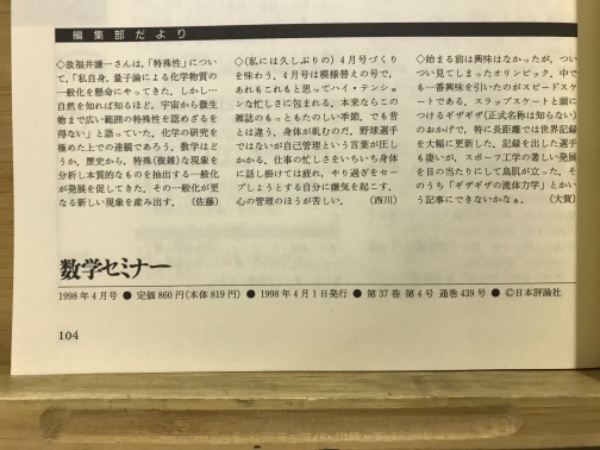 編集部だより
◇故福井謙一さんは，「特殊性」につい
て，「私自身，量子論による化学物質の
一般化を懸命にやってきた．しかし…
自然を知れば知るほど，宇宙から微生
物まで広い範囲の特殊性を認めざるを
得ない」と語っていた．化学の研究を
極めた上での達観であろう．数学はど
うか．歴史から，特殊(複雑)な現象を
分析し本質的なものを抽出する一般化
が発展を促してきた．その一般化が更
なる新しい現象を産み出す． (佐藤)
◇(私には久しぶりの) 4月号づくり
を味わう．4月号は模様替えの号で，
あれもこれもと思ってハイ・テンショ
ンな忙しさに包まれる．本来ならこの
雑誌のもっともたのしい季節．でも昔
とは違う．身体が軋むのだ．野球選手
ではないが自己管理という言葉が圧し
かかる．仕事の忙しさをいちいち身体
に話し掛けては疲れ，やり過ぎをセー
ブしようとする自分に嫌気を起こす．
心の管理のほうが苦しい． (西川)
◇始まる前は興味はなかったが，つい
つい見てしまったオリンピック．中で
も一番興味を引いたのがスピードスケ
ートである．スラップスケートと頭に
つけるギザギザ(正式名称は知らない)
のおかげで，特に長距離では世界記録
を大幅に更新した．記録を出した選手
も凄いが，スポーツ工学の著しい発展
を目の当たりにして鳥肌が立った．そ
のうち「ギザギザの流体力学」とかい
う記事にできないかなぁ． (大賀)
数学セミナー
1998年4月号 ● 定価860円(本体819円) ● 1998年4月1日発行 ● 第37巻 第4号 通巻439号 ● ©日本評論社
104